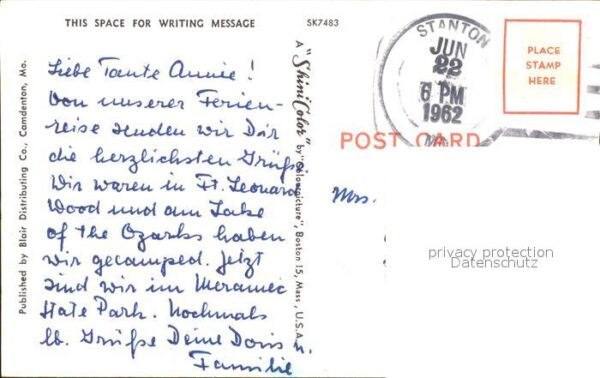 THIS SPACE FOR WRITING MESSAGE
SK7483
Liebe Tante Annie!
Von unserer Ferien-
reise senden wir Dir
die herzlichsten Grüße
Wir waren in Ft. Leonard
Wood und am Lake
of the Ozarks haben
wir gecamped. Jetzt
sind wir im Meramec
State Park. Nochmals
lb. Grüße Deine Doris u.
Familie
Published by Blair Distributing Co., Camdenton, Mo.
A "ShiniColor" by "Colourpicture", Boston 15, Mass., U.S.A.
STANTON
JUN
22
6 PM
1962
PLACE
STAMP
HERE
POST CARD
Mrs.
privacy protection
Datenschutz